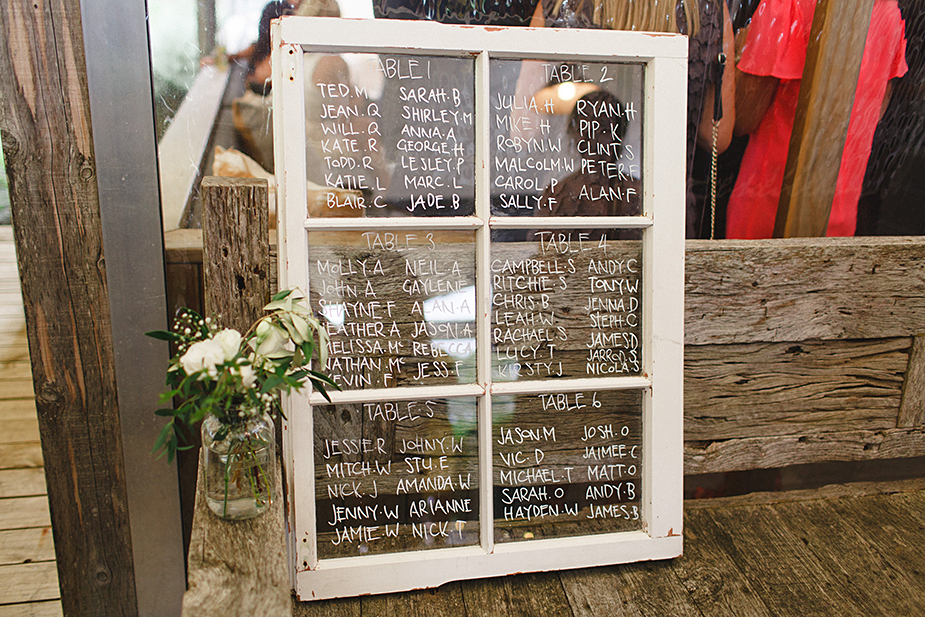 TABLE 1
TED.M SARAH.B
JEAN.Q SHIRLEY.M
WILL.Q ANNA.A
KATE.R GEORGE.H
TODD.R LESLEY.P
KATIE.L MARC.L
BLAIR.C JADE.B
TABLE 2
JULIA.H RYAN.H
MIKE.H PIP.K
ROBYN.W CLINT.S
MALCOLM.W PETER.F
CAROL.P ALAN.F
SALLY.F
TABLE 3
MOLLY.A NEIL.A
JOHN.A GAYLENE
SHAYNE.F ALAN.A
HEATHER.A JASON.A
MELISSA.Mc REBECCA
NATHAN.Mc JESS.F
KEVIN.F
TABLE 4
CAMPBELL.S ANDY.C
RITCHIE.S TONY.W
CHRIS.B JENNA.D
LEAH.W STEPH.C
RACHAEL.S JAMES.D
LUCY.T JARROD.S
KIRSTY.J NICOLA.S
TABLE 5
JESSIE.R JOHNY.W
MITCH.W STU.E
NICK.J AMANDA.W
JENNY.W ARIANNE
JAMIE.W NICK.T
TABLE 6
JASON.M JOSH.O
VIC.D JAIMEE.C
MICHAEL.T MATT.O
SARAH.O ANDY.B
HAYDEN.W JAMES.B